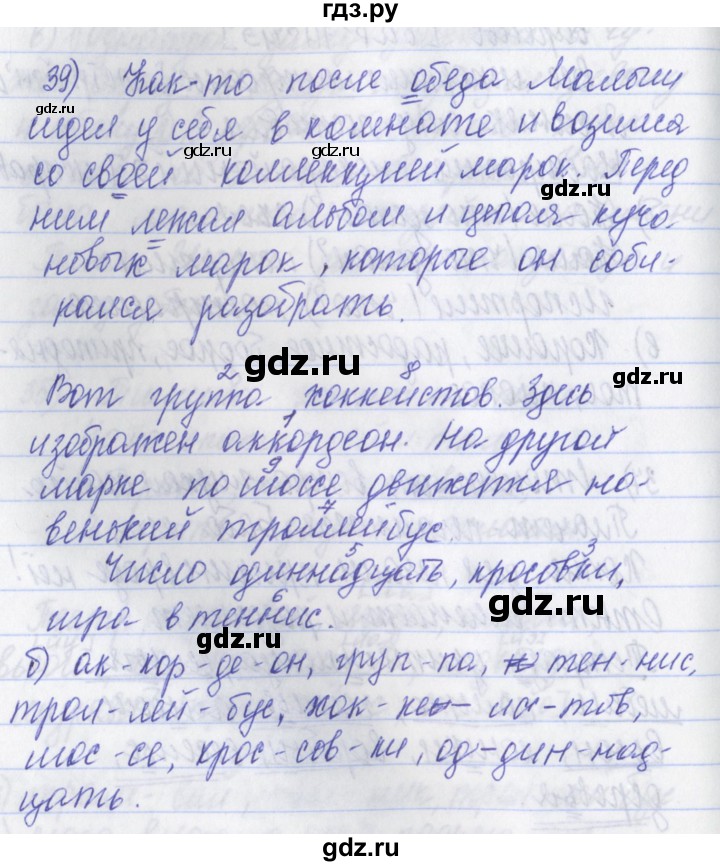 гдз.ру
39) Как-то после обеда Малыш
сидел у себя в комнате и возился
со своей коллекцией марок. Перед
ним лежал альбом и целая куча
новых марок, которые он соби-
рался разобрать.
Вот группа хоккеистов. Здесь
изображен аккордеон. На другой
марке по шоссе движется но-
венький троллейбус.
Число одиннадцать, кросовки,
игра в теннис.
б) ак-кор-де-он, груп-па, тен-нис,
трол-лей-бус, хок-ке- ис-тов,
шос-се, крос-сов-ки, од-дин-над-
цать.
gdz.ru
gdz.ru
gdz.ru
gdz.ru
gdz.ru
gdz.ru
gdz.ru
gdz.ru
gdz.ru
gdz.ru
gdz.ru
gdz.ru
гдз.ру